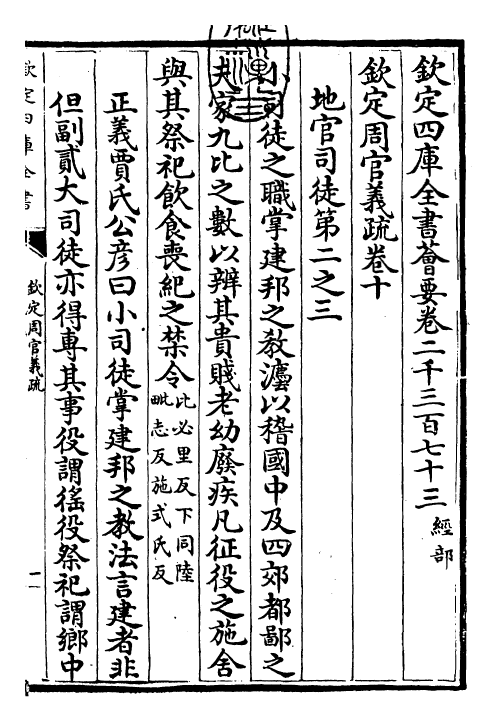 欽定四庫全書薈要卷二千三百七十三 經部
欽定周官義疏卷十
地官司徒第二之三
小司徒之職掌建邦之教灋以稽國中及四郊都鄙之
夫家九比之數以辨其貴賤老幼廢疾凡征役之施舍
與其祭祀飲食喪紀之禁令 比必里反下同陸
毗志反施式氏反
正義賈氏公彦曰小司徒掌建邦之教法言建者非
但副貳大司徒亦得專其事役謂徭役祭祀謂鄉中
欽定四庫全書
欽定周官義疏
一